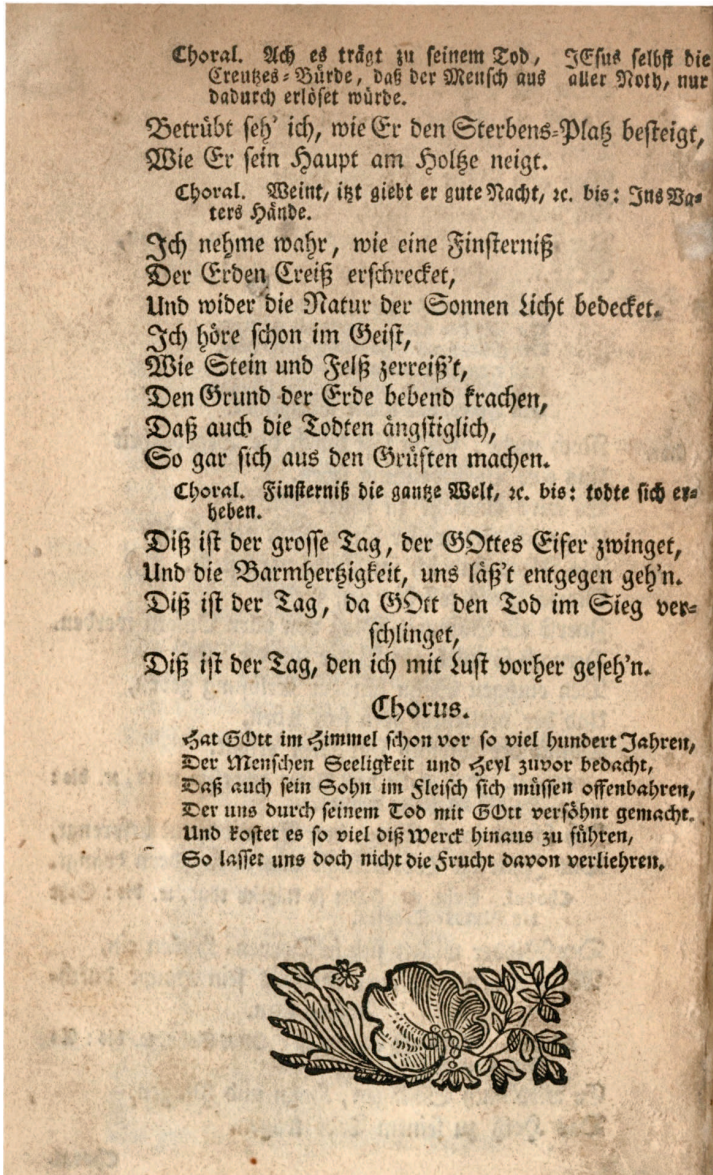 Choral. Ach es trägt zu seinem Tod, JEsus selbst die
Creutzes-Bürde, daß der Mensch aus aller Noth, nur
dadurch erlöset würde.
Betrübt seh' ich, wie Er den Sterbens-Platz besteigt,
Wie Er sein Haupt am Holtze neigt.
Choral. Weint, itzt giebt er gute Nacht, ꝛc. bis: Ins Va-
ters Hände.
Ich nehme wahr, wie eine Finsterniß
Der Erden Creiß erschrecket,
Und wider die Natur der Sonnen Licht bedecket.
Ich höre schon im Geist,
Wie Stein und Felß zerreiß't,
Den Grund der Erde bebend krachen,
Daß auch die Todten ängstiglich,
So gar sich aus den Grüften machen.
Choral. Finsterniß die gantze Welt, ꝛc. bis: todte sich er-
heben.
Diß ist der grosse Tag, der GOttes Eifer zwinget,
Und die Barmhertzigkeit, uns läß't entgegen geh'n.
Diß ist der Tag, da GOtt den Tod im Sieg ver-
schlinget,
Diß ist der Tag, den ich mit Lust vorher geseh'n.
Chorus.
Hat GOtt im Himmel schon vor so viel hundert Jahren,
Der Menschen Seeligkeit und Heyl zuvor bedacht,
Daß auch sein Sohn im Fleisch sich müssen offenbahren,
Der uns durch seinem Tod mit GOtt versöhnt gemacht.
Und kostet es so viel diß Werck hinaus zu führen,
So lasset uns doch nicht die Frucht davon verliehren.